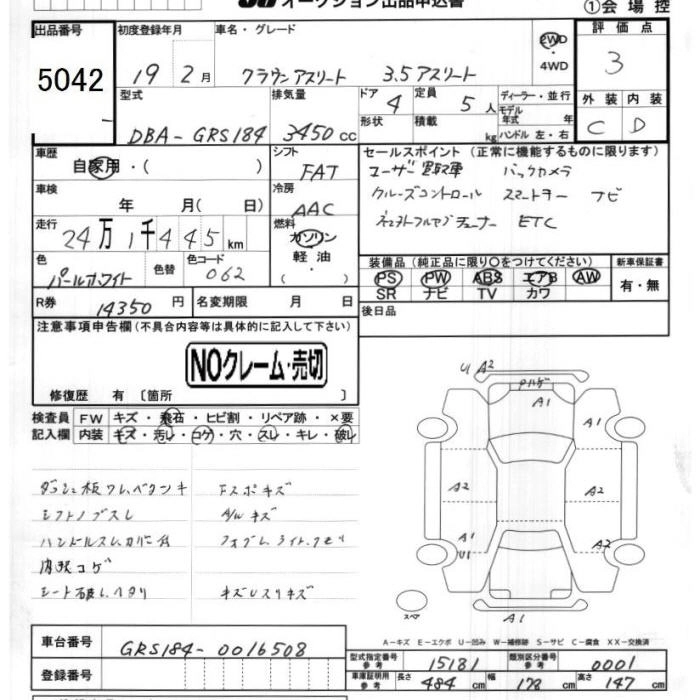 オークション出品申込書 ①会場控
出品番号 初度登録年月 車名・グレード 2WD 評価点
5042 19年2月 クラウンアスリート 3.5アスリート ・4WD 3
型式 排気量 ドア 4 定員 5人 ディーラー・並行 外装 内装
DBA-GRS184 3450cc 形状 積載 kg モデル年式 年 C D
ハンドル 左・右
車歴 自家用・( ) シフト FAT セールスポイント (正常に機能するものに限ります)
ユーザー買取車 バックカメラ
車検 年 月(日) 冷房 AAC クルーズコントロール スマートキー ナビ
走行 24万1千445km 燃料 ガソリン 軽油・( ) チューナー ETC
色 パールホワイト 色替 色コード 062 装備品 (純正品に限り○をつけてください) 新車保証書
PS PW ABS エアB AW 有・無
SR ナビ TV カワ
R券 14350円 名変期限 月 日 後日品
注意事項申告欄 (不具合内容等は具体的に記入して下さい)
NOクレーム・売切
修復歴 有 〔箇所 〕
検査員 FW キズ・飛石・ヒビ割・リペア跡・×要
記入欄 内装 キズ・汚レ・コゲ・穴・スレ・キレ・破レ
U A2
A1
A1
A2 A2
A1 U1 A2
スペア A1
ダッシュ板ワレ、ベタツキ Fスポキズ
シフトノブスレ A/Wキズ
ハンドルスレ、カバー
内張コゲ
シート破レ、ヘタリ キズUスリキズ
A-キズ E-エクボ U-凹み W-補修跡 S-サビ C-腐食 XX-交換済
車台番号 GRS184-0016508 型式指定番号 参考 15181 類別区分番号 参考 0001
登録番号 車庫証明用 参考 長さ 484cm 幅 178cm 高さ 147cm